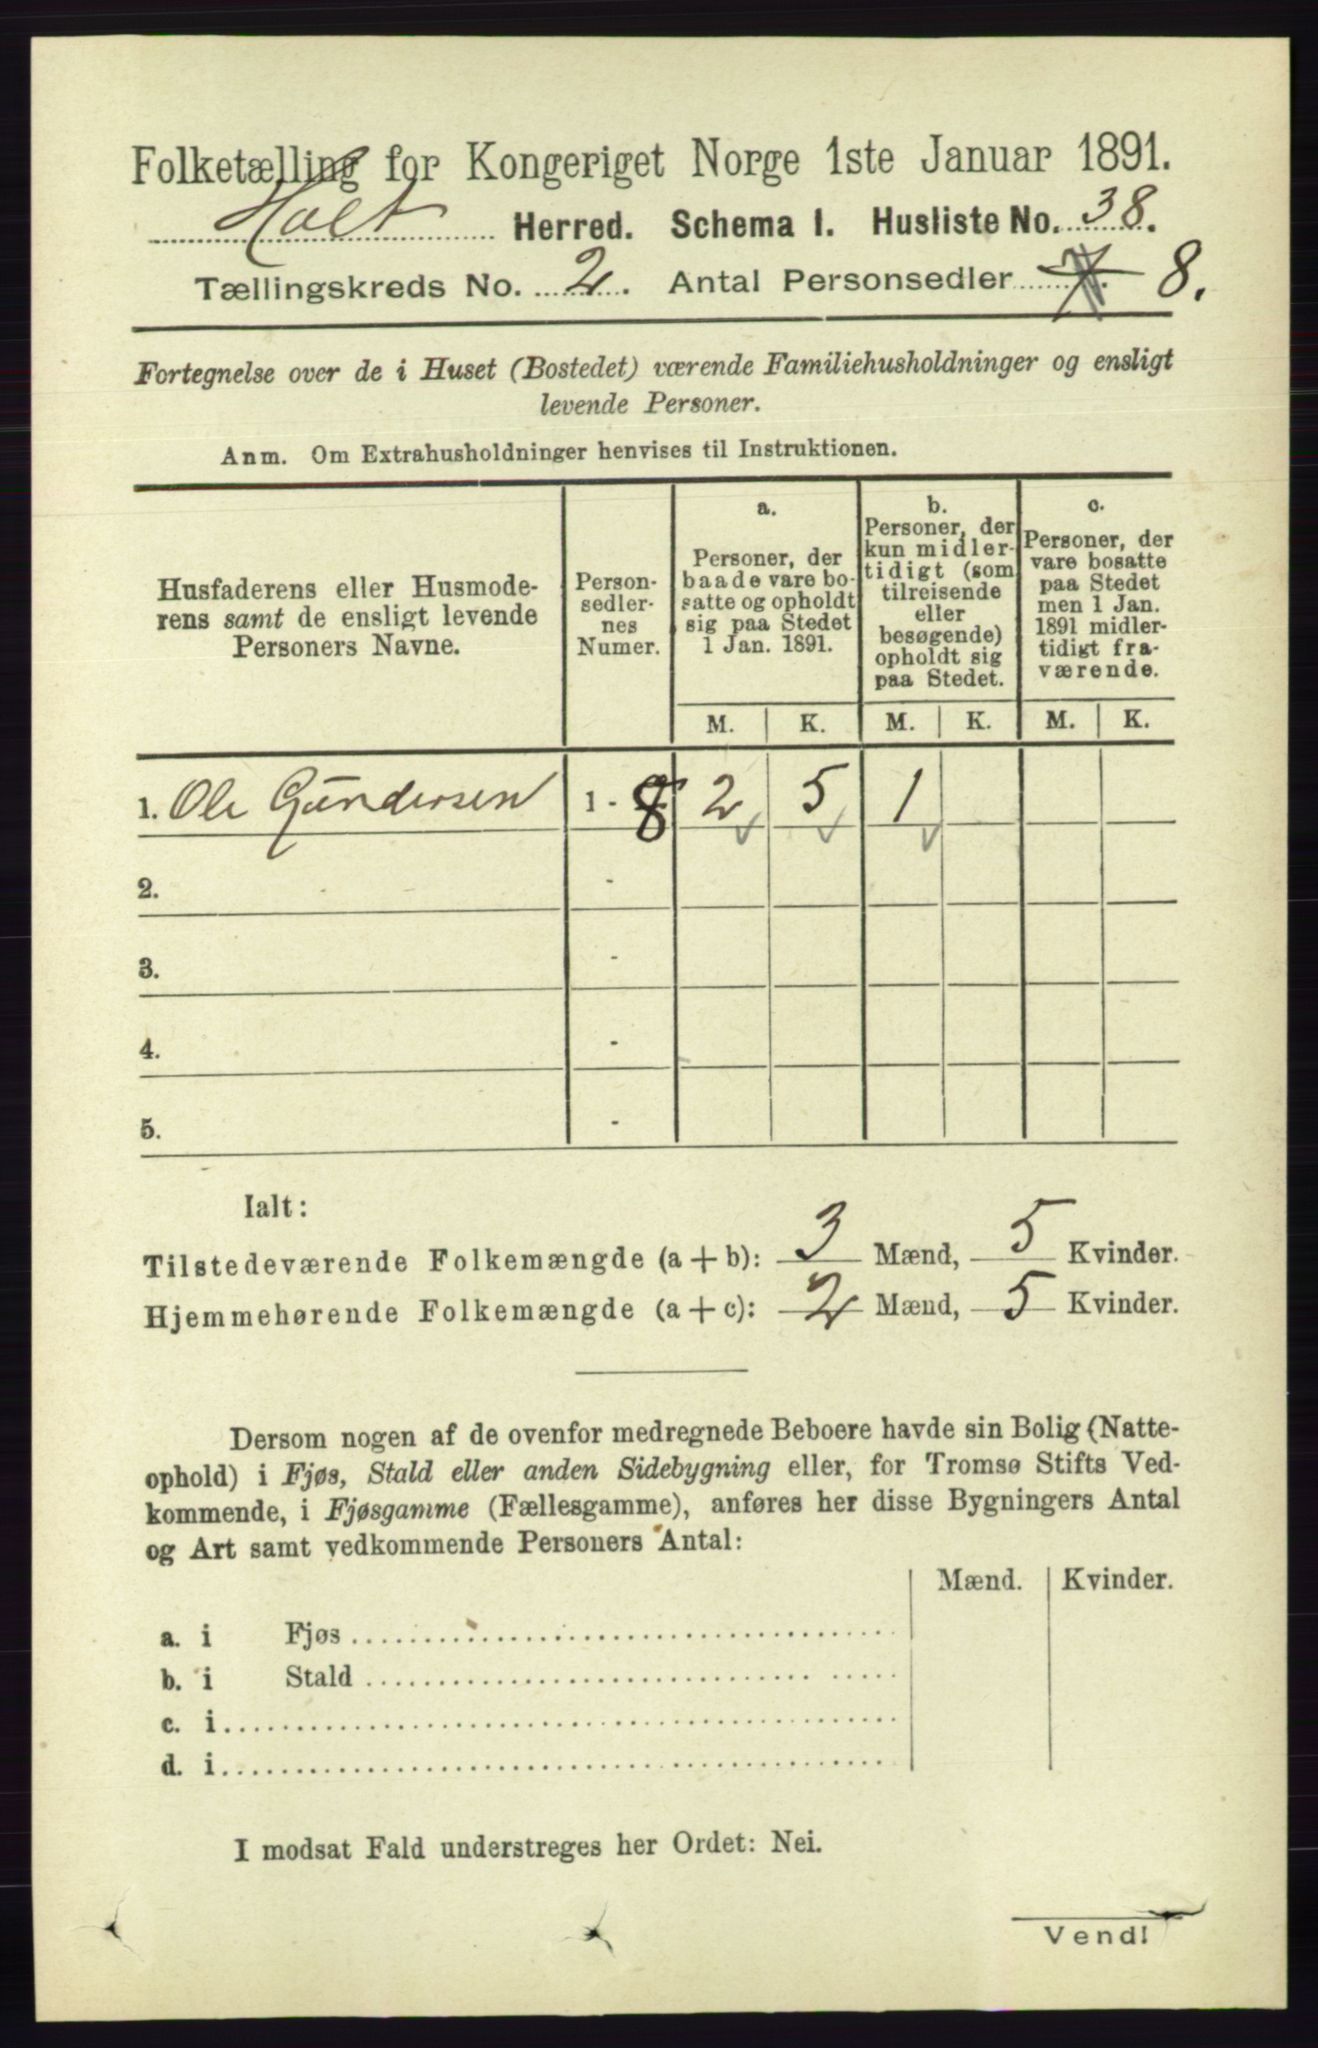 Folketælling for Kongeriget Norge 1ste Januar 1891.
Holt Herred. Schema 1. Husliste No. 38.
Tællingskreds No. 2. Antal Personsedler 7. 8.
Fortegnelse over de i Huset (Bostedet) værende Familiehusholdninger og ensligt
levende Personer.
Anm. Om Extrahusholdninger henvises til Instruktionen.
Husfaderens eller Husmode-
rens samt de ensligt levende
Personers Navne.
Person-
sedler-
nes
Numer.
a.
Personer, der
baade vare bo-
satte og opholdt
sig paa Stedet
1 Jan. 1891.
b.
Personer, der
kun midler-
tidigt (som
tilreisende
eller
besøgende)
opholdt sig
paa Stedet.
c.
Personer, der
vare bosatte
paa Stedet
men 1 Jan.
1891 midler-
tidigt fra-
værende.
M. K. M. K. M. K.
1. Ole Gundersen 1 - 8 2 5 1
2. -
3. -
4. -
5. -
Ialt:
Tilstedeværende Folkemængde (a + b): 3 Mænd, 5 Kvinder.
Hjemmehørende Folkemængde (a + c): 2 Mænd, 5 Kvinder.
Dersom nogen af de ovenfor medregnede Beboere havde sin Bolig (Natte-
ophold) i Fjøs, Stald eller anden Sidebygning eller, for Tromsø Stifts Ved-
kommende, i Fjøsgamme (Fællesgamme), anføres her disse Bygningers Antal
og Art samt vedkommende Personers Antal:
Mænd. Kvinder.
a. i Fjøs
b. i Stald
c. i
d. i
I modsat Fald understreges her Ordet: Nei.
Vend!